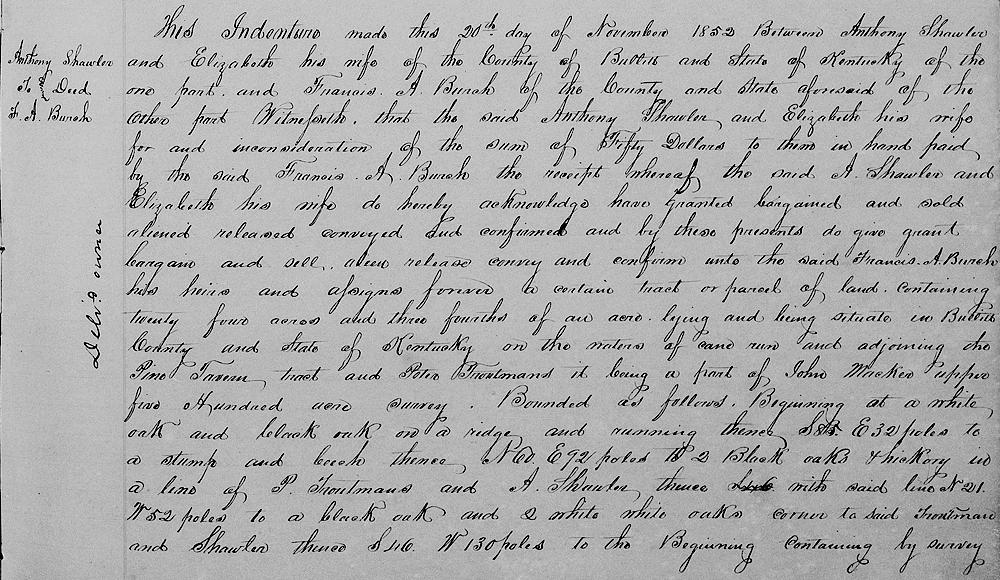 This Indenture made this 20th day of November 1852 Between Anthony Shawler
Anthony Shawler
To } Deed
F. A. Burch
and Elizabeth his wife of the County of Bullitt and State of Kentucky of the
one part. and Francis. A. Burch of the County and State aforesaid of the
other part Witnesseth. that the said Anthony Shawler and Elizabeth his wife
for and inconsideration of the sum of Fifty Dollars to them in hand paid
by the said Francis. A. Burch the receipt whereof the said A. Shawler and
Elizabeth his wife do hereby acknowledge have granted bargained and sold
aliened released conveyed and confirmed and by these presents do give grant
bargain and sell. alien release convey and confirm unto the said Francis. A. Burch
his heirs and assigns forever a certain tract or parcel of land. containing
twenty four acres and three fourths of an acre. lying and being situate in Bullitt
County and State of Kentucky on the waters of cane run and adjoining the
Pine Tavern tract and Peter Troutmans it being a part of John Wacker upper
five Hundred acre survey. Bounded as follows. Beginning at a white
oak and black oak on a ridge and running thence E 32 poles to
a stump and beech thence N 60. E 92 poles to 2 Black oaks & hickory in
a line of P. Troutmans and A. Shawler thence with said line N 21.
W 52 poles to a black oak and 2 white white oaks corner to said Troutman
and Shawler thence S 46. W 130 poles to the Beginning containing by survey
Del's owner